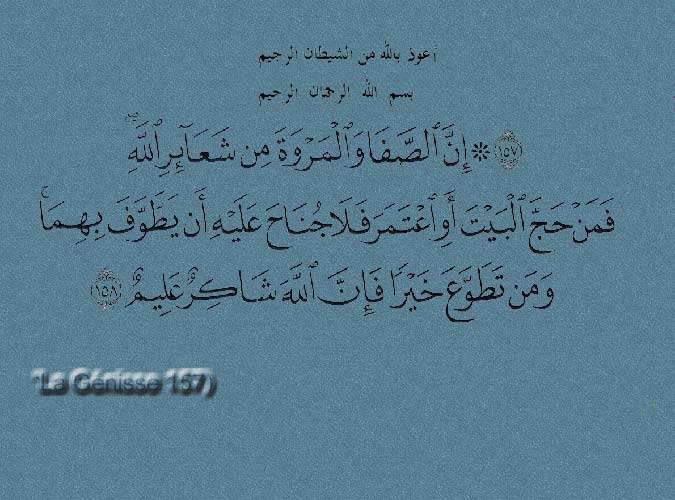 أعوذ بالله من الشيطان الرجيم
بسم الله الرحمان الرحيم
١٥٧ * إِنَّ ٱلصَّفَا وَٱلْمَرْوَةَ مِن شَعَآئِرِ ٱللَّهِۖ
فَمَنْ حَجَّ ٱلْبَيْتَ أَوِ ٱعْتَمَرَ فَلَا جُنَاحَ عَلَيْهِ أَن يَطَّوَّفَ بِهِمَاۚ
وَمَن تَطَوَّعَ خَيْرًا فَإِنَّ ٱللَّهَ شَاكِرٌ عَلِيمٌ ١٥٨
"La Génisse 157)